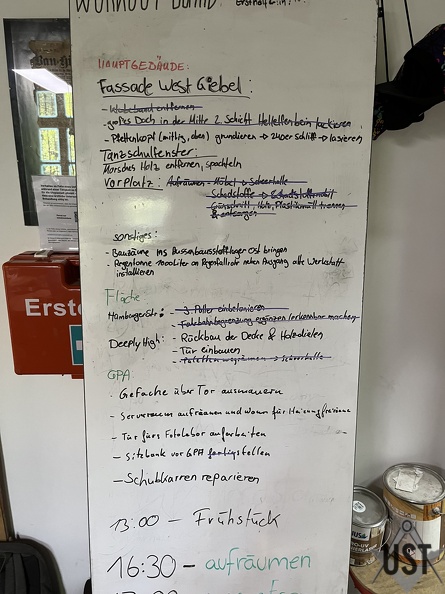 WORKOUT BOARD:
HAUPTGEBÄUDE:
Fassade West Giebel:
- Wobeband entfernen
- großes Dach in der Mitte 2. Schicht Hellelfenbein lackieren
- Pfettenkopf (mittig, oben) grundieren → 240er Schliff → lasieren
Tanzschulfenster:
Morsches Holz entfernen, spachteln
Vorplatz: Aufräumen - Möbel → Scheerhalle
Schadstoffe → Schadstoffmobil
Grünschnitt, Holz, Plastikmüll trennen
& entsorgen
sonstiges:
- Bauzäune ins Aussenbaustofflager Ost bringen
- Regentonne 1000 Liter an Regenfallrohr neben Ausgang alte Werkstatt
installieren
Fläche
HamburgerStr.: - 3. Poller einbetonieren
- Fotobahnbegrenzung ergänzen /erkennbar machen
DeeplyHigh: - Rückbau der Decke & Holzdielen
- Tür einbauen
- Paletten wegräumen → Scheerhalle
GPA
- Gefache über Tor ausmauern
- Serverraum aufräumen und
- Tür fürs Fotolabor aufarbeiten
- Sitzbank vor GPA fertigstellen
- Schubkarren reparieren
13:00 - Frühstück
16:30 - aufräumen
Erste
UST